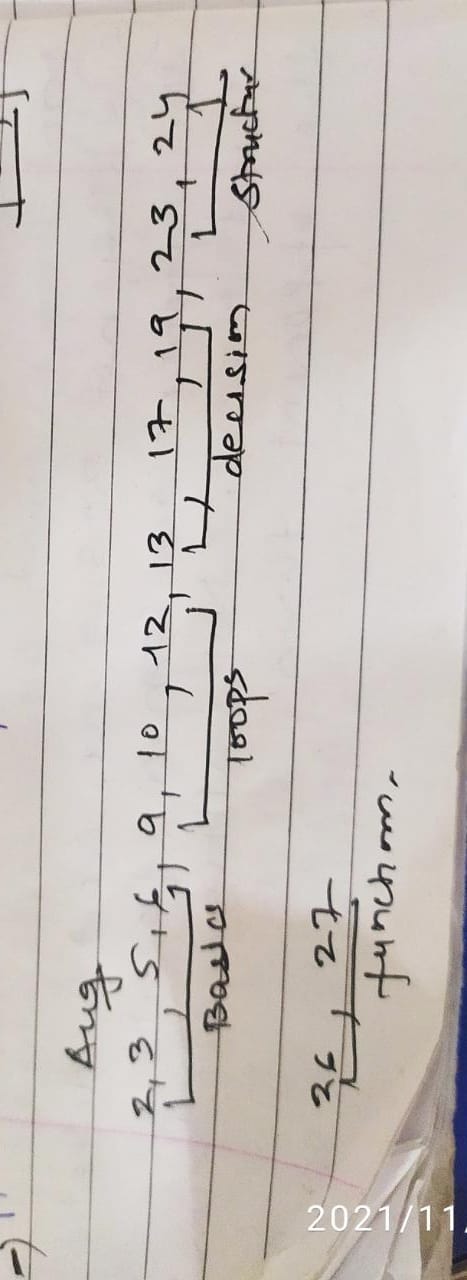 Aug
2, 3, 5, 6, 9, 10, 12, 13, 17, 19, 23, 24
Basics loops decision Structur
26, 27
function.
2021/11